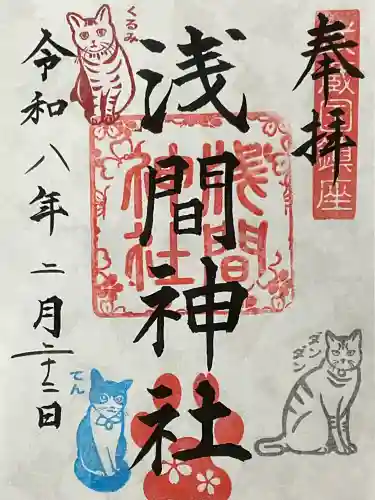 奉拝
武蔵国鎮座
浅間神社
浅間神社
令和八年二月二十二日
くるみ
てん
ダンダン